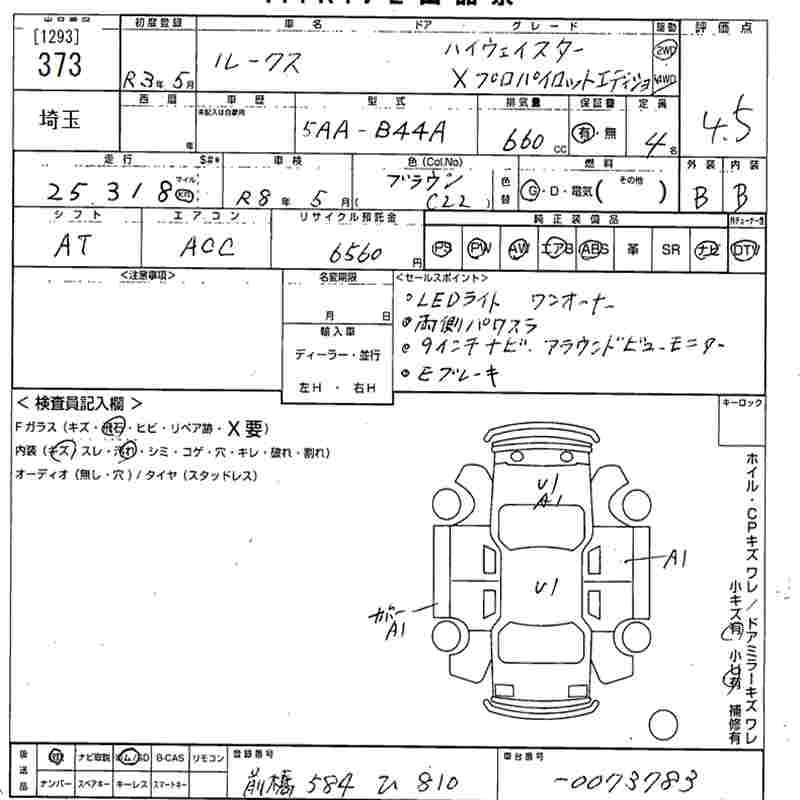 [1293]
373
埼玉
初度登録
R3年5月
車名
ドア
グレード
ルークス
ハイウェイスター
Xプロパイロットエディション
駆動
2WD
4WD
評価点
4.5
西暦
年
車歴
未記入は自家用
型式
5AA-B44A
排気量
660 cc
保証書
有・無
定員
4名
走行
25,318
マイル
km
$#*
車検
R8年5月
色(Col.No)
ブラウン
(C22)
色替
燃料
G・D・電気(その他)
外装
B
内装
B
シフト
AT
エアコン
ACC
リサイクル預託金
6560円
純正装備品
PS PW AW エアB ABS 革 SR ナビ
DTV
<注意事項>
名変期限
月 日
輸入車
ディーラー・並行
左H・右H
<セールスポイント>
LEDライト ワンオーナー
両側パワスラ
9インチナビ・アラウンドビューモニター
Eブレーキ
<検査員記入欄>
Fガラス(キズ・飛石・ヒビ・リペア跡・X要)
内装(キズ/スレ・汚れ・シミ・コゲ・穴・キレ・破れ・割れ)
オーディオ(無し・穴)/タイヤ(スタッドレス)
キーロック
U1
A1
U1
A1
カバー
A1
ホイル・CPキズワレ/ドアミラーキズワレ
小キズ有 小U有 補修有
後送品
ナビ取説
B-CAS
リモコン
ナンバー
スペアキー
キーレス
スマートキー
登録番号
前橋 584 ひ 810
車台番号
-0073783